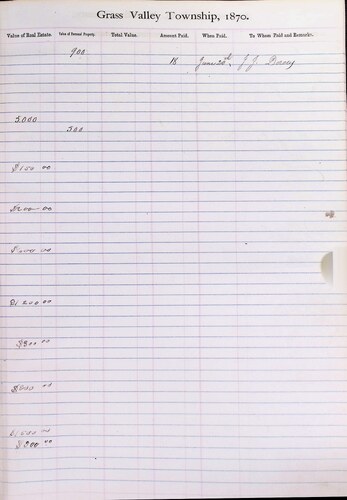 Grass Valley Township, 1870.
Value of Real Estate. Value of Personal Property. Total Value. Amount Paid. When Paid. To Whom Paid and Remarks.
900
18 June 20th, J. J.
5.000
500
$ 00
00
00
$1200 00
$300 00
00
$1500 00
$300 00